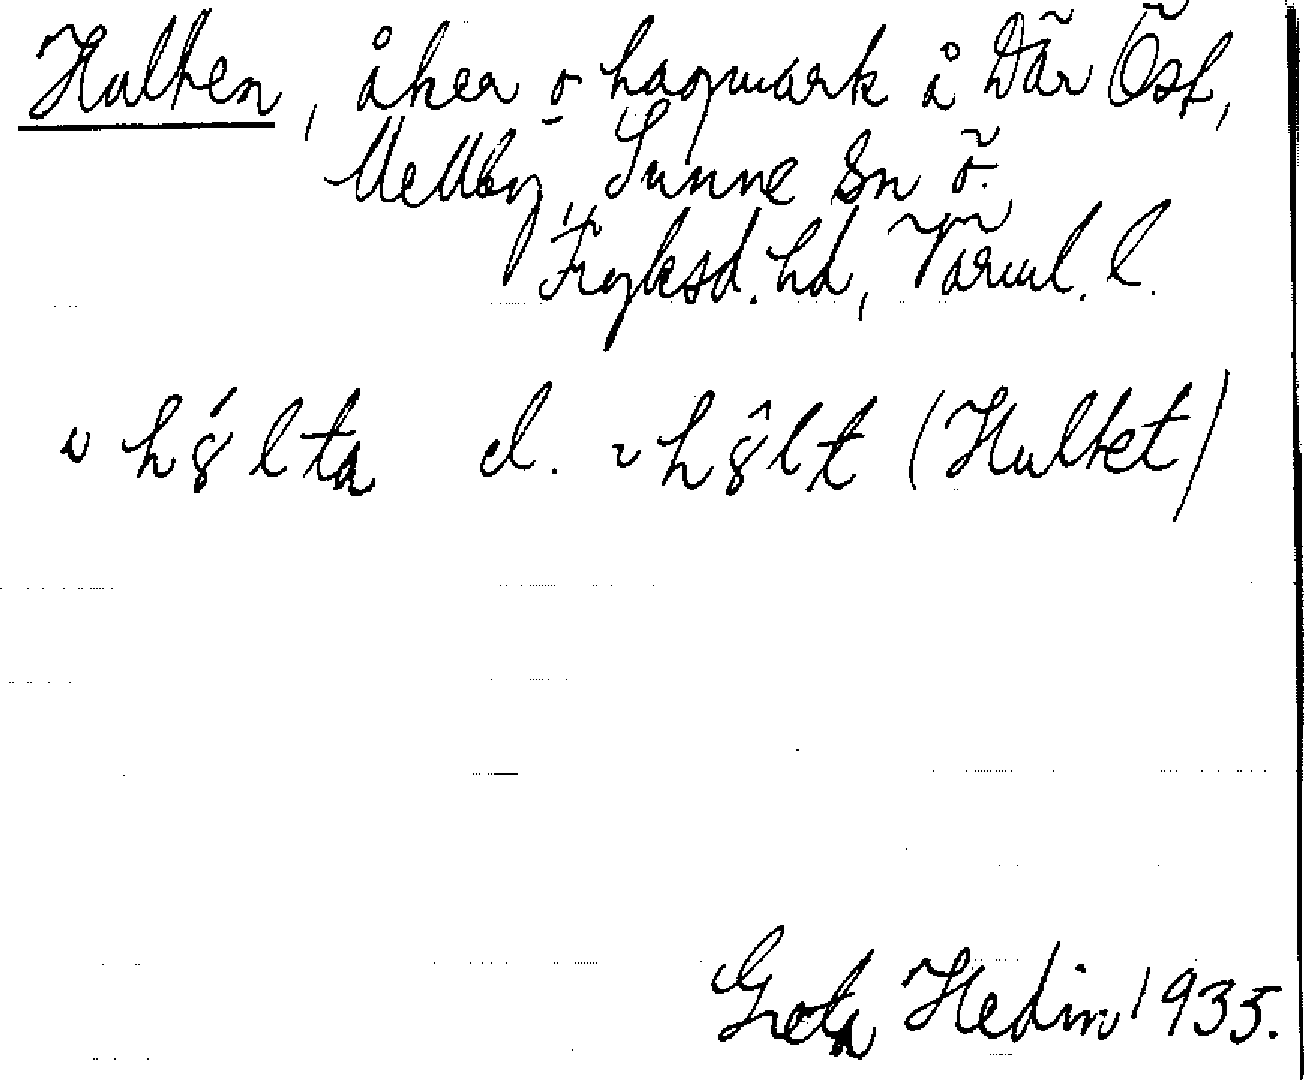 Hulten, åker o hagmark å Där Öst,
Mellby, Sunne sn ö.
Fryksd. hd, Värml. l.
hú̶lta el. hŷlt (Hultet)
Greta Hedin 1935.